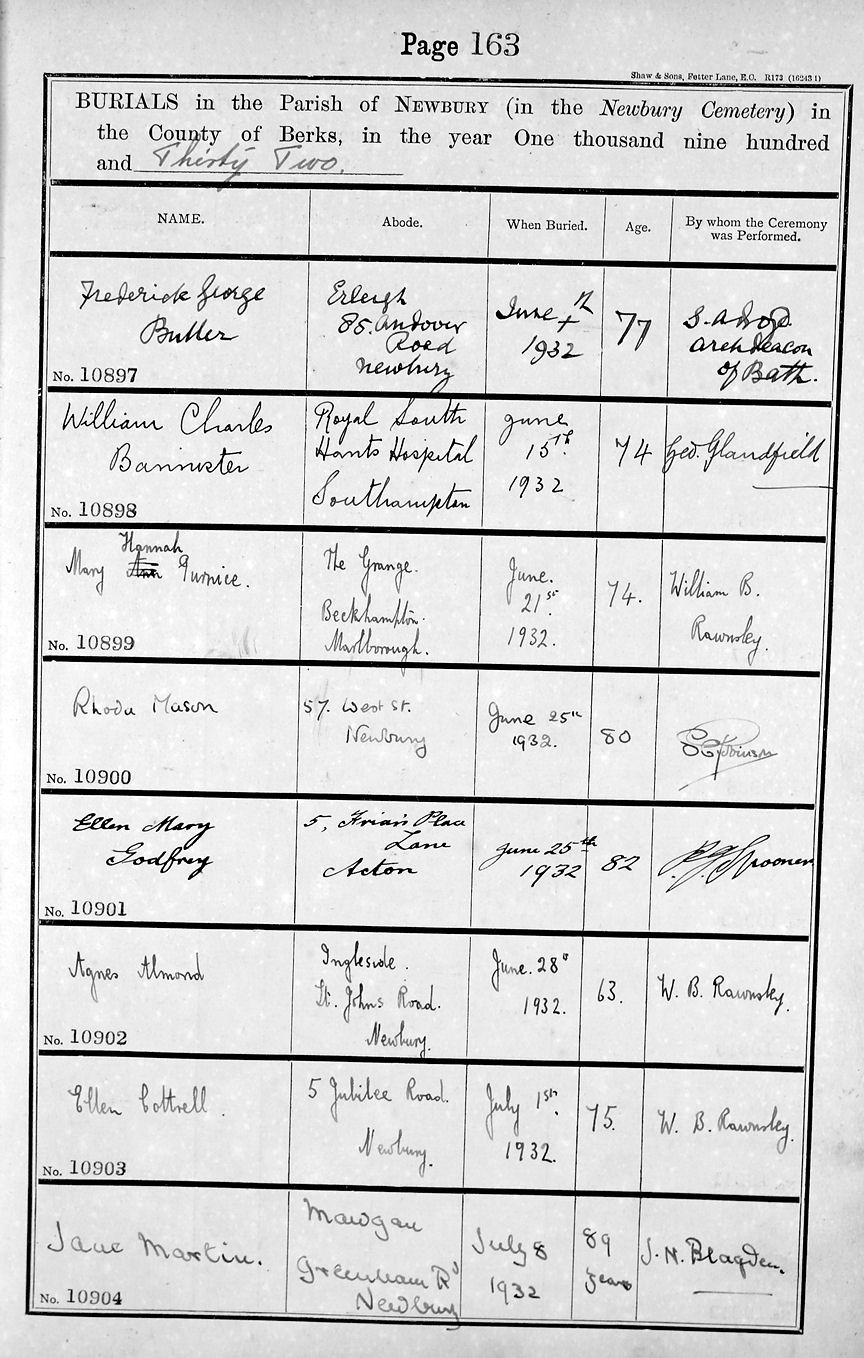 Page 163
Shaw & Sons, Fetter Lane, E.C. R173 (16243 1)
BURIALS in the Parish of NEWBURY (in the Newbury Cemetery) in
the County of Berks, in the year One thousand nine hundred
and Thirty Two.
NAME.
Abode.
When Buried.
Age.
By whom the Ceremony
was Performed.
Frederick George
Butler
No. 10897
Erleigh
85. Andover
Road
Newbury
June
1932
77
Archdeacon
of Bath.
William Charles
Bannister
No. 10898
Royal South
Hants Hospital
Southampton
June
15th.
1932
74
Geo. Glandfield
Hannah
Mary Ann Purnice.
No. 10899
The Grange.
Beckhampton.
Marlborough.
June.
21st.
1932.
74.
William B.
Rawnsley.
Rhoda Mason
No. 10900
57. West St.
Newbury
June 25th
1932.
80
Ellen Mary
Godfrey
No. 10901
5, Friar's Place
Lane
Acton
June 25th
1932
82
Spooner
Agnes Almond
No. 10902
Ingleside.
St. Johns Road.
Newbury.
June. 28th
1932.
63.
W. B. Rawnsley.
Ellen Cottrell.
No. 10903
5 Jubilee Road.
Newbury.
July 1st.
1932.
75.
W. B. Rawnsley.
Jane Martin.
No. 10904
Mawgan
Greenham Rd
Newbury
July 8
1932
89
years
J. N. Blagden.